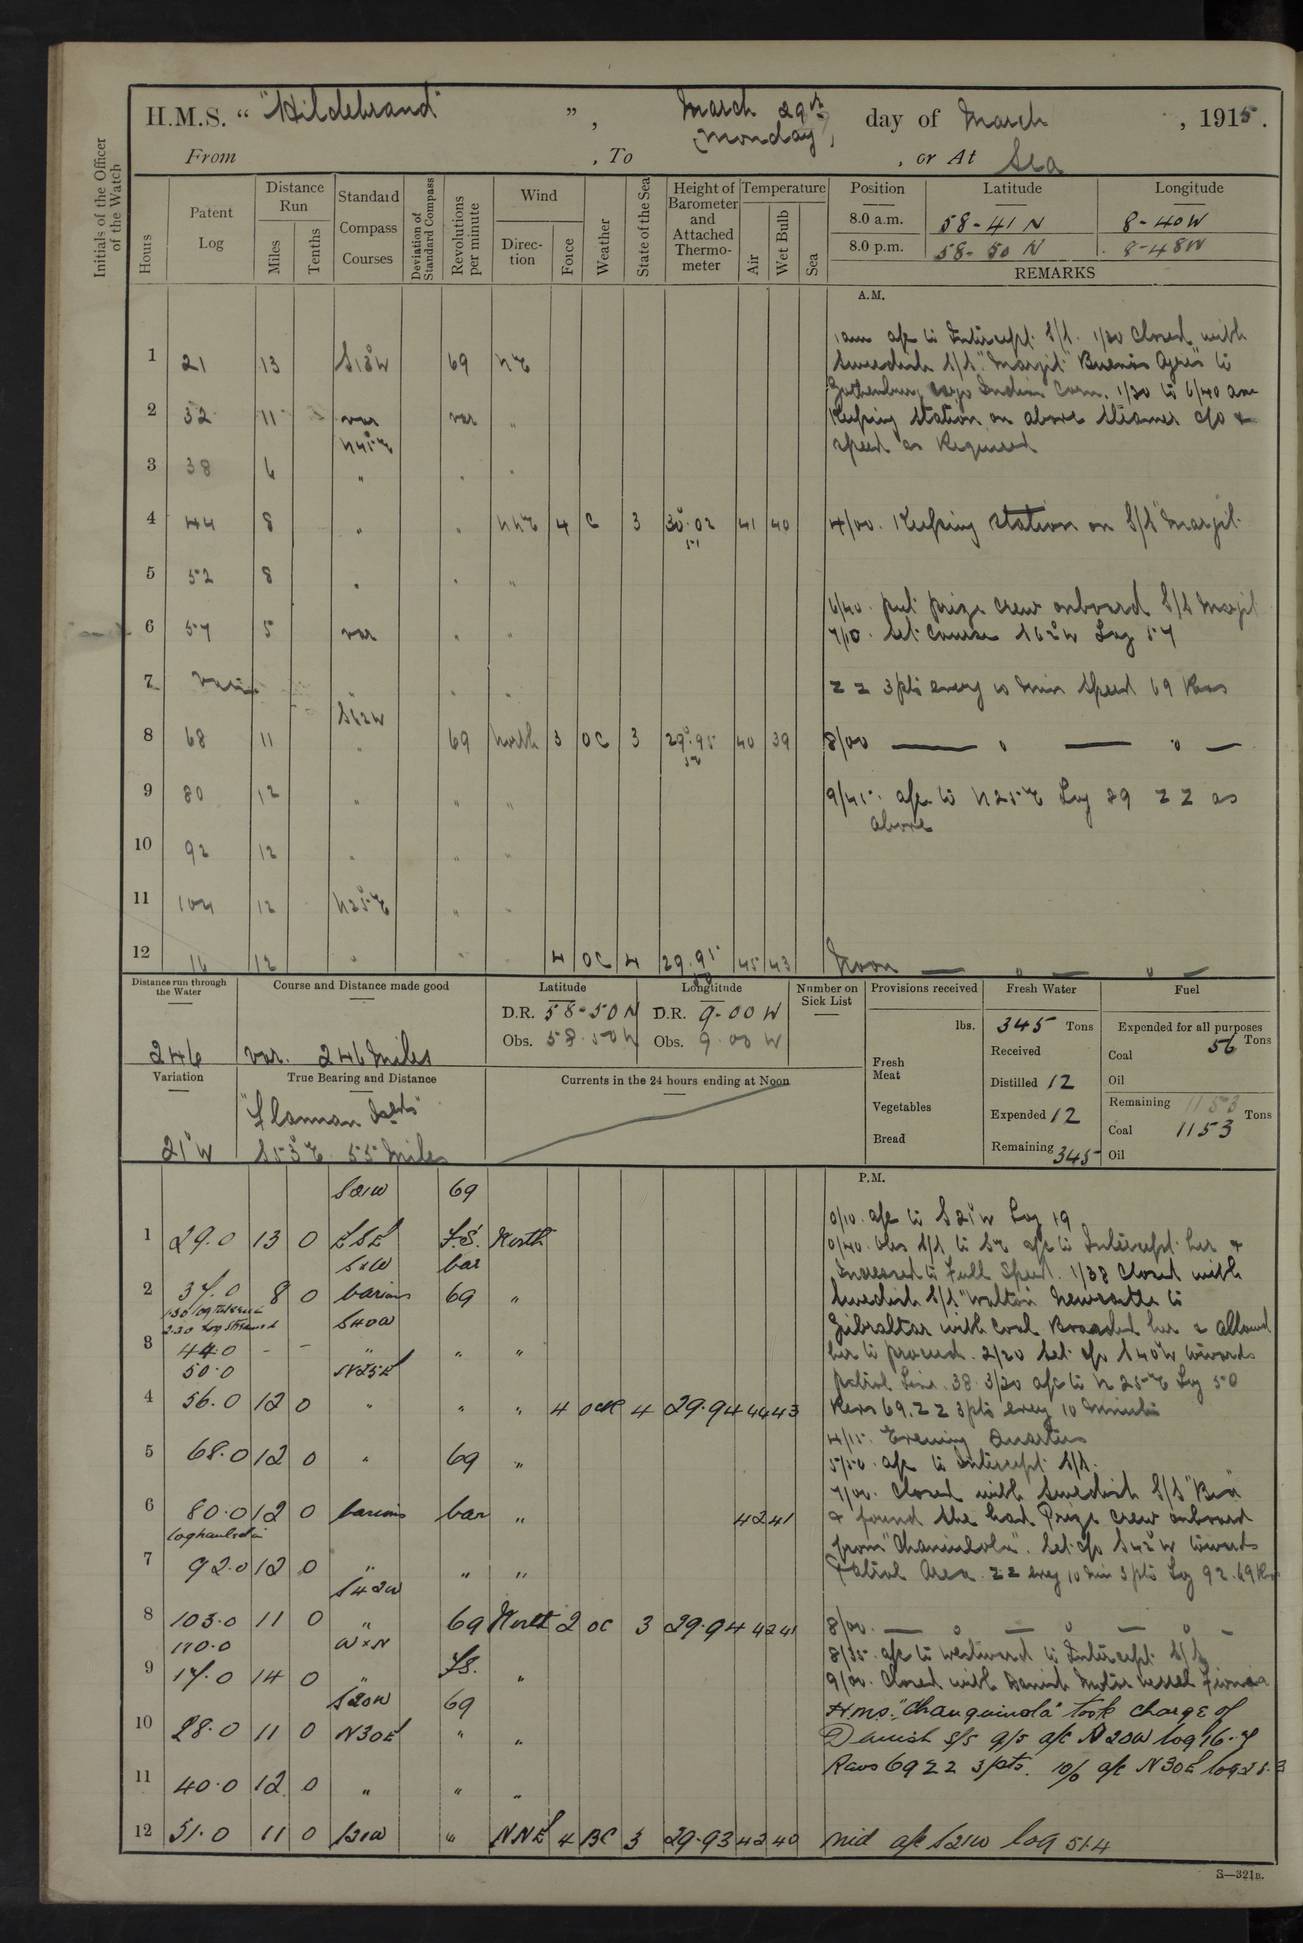 H.M.S. " "Hildebrand" ", March 29th (Monday), day of March, 1915.
From , To , or At Sea
Initials of the Officer of the Watch
Hours
Patent Log
Distance Run
Miles
Tenths
Standard Compass Courses
Deviation of Standard Compass
Revolutions per minute
Wind
Direction
Force
Weather
State of the Sea
Height of Barometer and Attached Thermometer
Temperature
Air
Wet Bulb
Sea
Position Latitude Longitude
8.0 a.m. 58-41 N 8-40 W
8.0 p.m. 58-50 N 8-48 W
REMARKS
A.M.
1 am a/c to Intercept S/S. 1/20 Closed with
1 21 13 S18°W 69 NE
Swedish S/S "Marjit" Buenos Ayres to
Gothenburg cargo Indian Corn. 1/30 to 6/40 am
2 32 11 var var "
Keeping station on above steamer c/o &
N45°E
speed as Required
3 38 6 " " "
4 44 8 " " NNE 4 C 3 30.02 41 40 4/00. Keeping station on S/S "Marjit"
51
5 52 8 " " "
6/40. put prize crew onboard S/S Marjit
6 57 5 var " "
7/10. Set Course S62°W Log 57
7 " " "
ZZ 3pts every 10 min Speed 69 Revs
S62W
8 68 11 " 69 North 3 OC 3 29.95 40 39 8/00 — " — " —
9 80 12 " " " 9/45. a/c to N25°E Log 89 ZZ as
above
10 92 12 " " "
11 104 12 N25°E " "
12 16 12 " " " 4 OC 4 29.95 45 43 Noon — " — " —
50
Distance run through the Water
246
Course and Distance made good
var. 246 Miles
Latitude
D.R. 58-50 N
Obs. 58.50 N
Longtitude
D.R. 9-00 W
Obs. 9.00 W
Number on Sick List
Provisions received
lbs.
Fresh Meat
Vegetables
Bread
Fresh Water
345 Tons
Received
Distilled 12
Expended 12
Remaining 345
Fuel
Expended for all purposes
Tons
Coal 56
Oil
Remaining 1153 Tons
Coal 1153
Oil
Variation
21°W
True Bearing and Distance
"Flannan Islds"
S53°E 55 Miles
Currents in the 24 hours ending at Noon
P.M.
S21W 69
0/10. a/c to S21°W Log 19
1 29.0 13 0 ESE F.S. North
0/40. Obs S/S to SE a/c to Intercept her &
S21W var
Increased to Full Speed. 1/38 Closed with
2 37.0 8 0 various 69 "
Swedish S/S "Walton" Newcastle to
1.30 log hauled in
2.30 Log streamed S40W
Gibraltar with Coal Boarded her & allowed
3 44.0 - - " " "
her to proceed. 2/20 Set c/o S40°W towards
50.0 N25E
patrol Line. 38. 3/20 a/c to N25°E Log 50
4 56.0 12 0 " " " 4 4 29.94 44 43
Revs 69. ZZ 3pts every 10 Minutes
4/15. Evening Quarters
5 68.0 12 0 " 69 "
5/50. a/c to Intercept S/S.
7/00. Closed with Swedish S/S
6 80.0 12 0 various var " 42 41
& found she had Prize crew onboard
log hauled in
from Set c/o S42°W towards
7 92.0 12 0 " " "
Patrol Area. ZZ every 10 Min 3pts Log 92. 69 Revs
S42W
8 103.0 11 0 " 69 North 2 OC 3 29.94 42 41 8/00. — " — " — " —
110.0 W×N
8/35. a/c to westward to Intercept S/S
9 17.0 14 0 " F.S. "
9/00. Closed with Danish Motor vessel Fionia
S20W 69
HMS. "Changuinola" took charge of
10 28.0 11 0 N30E " "
Danish S/S 9/5 a/c N20W log 16.7
Revs 69 ZZ 3pts. 10/0 a/c N30E log 28.3
11 40.0 12 0 " " "
12 51.0 11 0 S21W " NNE 4 BC 3 29.93 42 40 Mid a/c S21W log 51.4
S—321B.